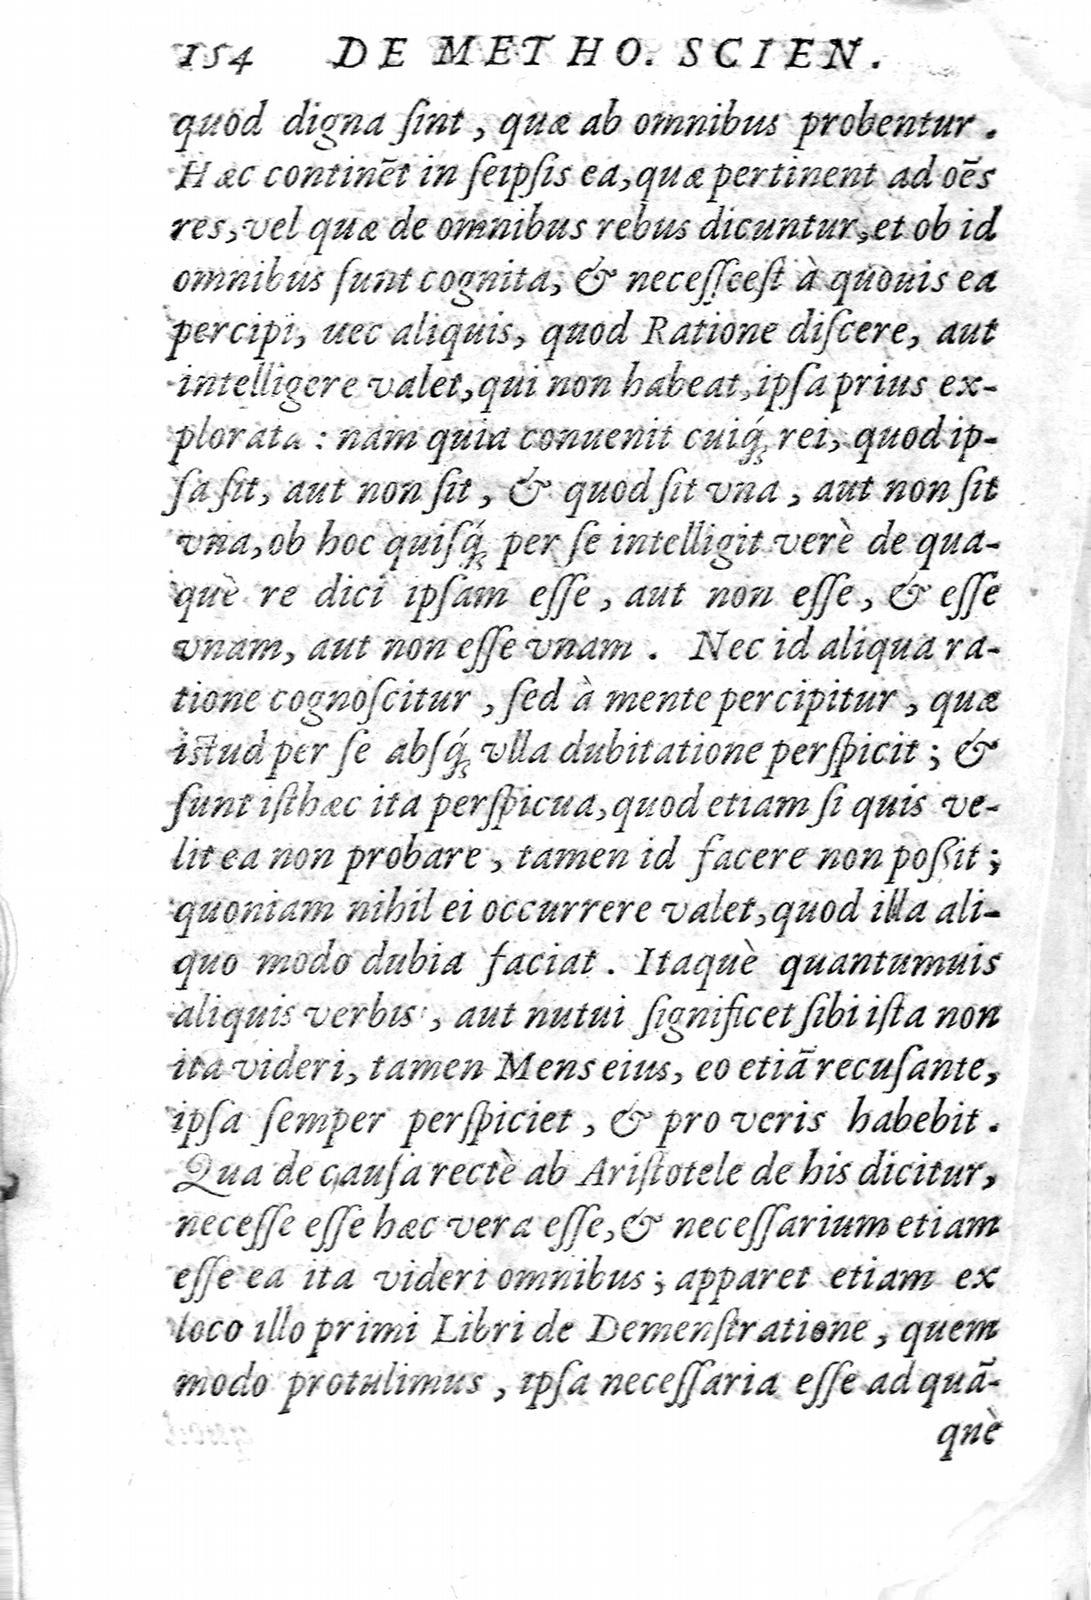 154 DE METHO. SCIEN.
quod digna ſint, quæ ab omnibus probentur.
Hæc continẽt in ſeipſis ea, quæ pertinent ad oẽs
res, vel quæ de omnibus rebus dicuntur, et ob id
omnibus ſunt cognita, & neceſſceſt à quouis ea
percipi, uec aliquis, quod Ratione diſcere, aut
intelligere valet, qui non habeat, ipſa prius ex-
plorata : nam quia conuenit cuiq́; rei, quod ip-
ſa ſit, aut non ſit, & quod ſit vna, aut non ſit
vna, ob hoc quiſq́; per ſe intelligit verè de qua-
què re dici ipſam eſſe, aut non eſſe, & eſſe
vnam, aut non eſſe vnam. Nec id aliqua ra-
tione cognoſcitur, ſed à mente percipitur, quæ
iſtud per ſe abſq́; vlla dubitatione perſpicit; &
ſunt iſthæc ita perſpicua, quod etiam ſi quis ve-
lit ea non probare, tamen id facere non poßit;
quoniam nihil ei occurrere valet, quod illa ali-
quo modo dubia faciat. Itaquè quantumuis
aliquis verbis, aut nutui ſignificet ſibi iſta non
ita videri, tamen Mens eius, eo etiã recuſante,
ipſa ſemper perſpiciet, & pro veris habebit.
Qua de cauſa rectè ab Ariſtotele de his dicitur,
neceſſe eſſe hæc vera eſſe, & neceſſarium etiam
eſſe ea ita videri omnibus; apparet etiam ex
loco illo primi Libri de Demenſtratione, quem
modo protulimus, ipſa neceſſaria eſſe ad quã-
què